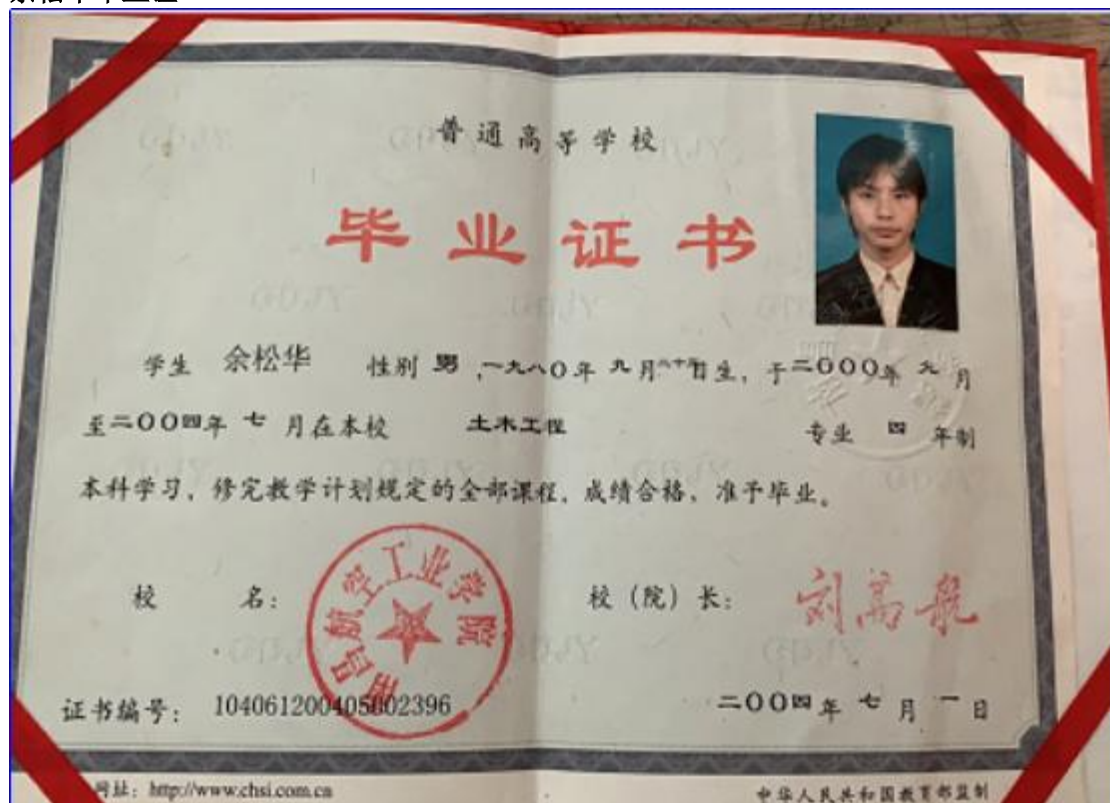 普通高等学校
毕业证书
学生 余松华 性别 男,一九八〇年 九月 日生,于二〇〇〇年 九月
至二〇〇四年 七 月在本校 土木工程 专业 四 年制
本科学习,修完教学计划规定的全部课程,成绩合格,准予毕业。
校 名: 南昌航空工业学院 校(院)长: 刘高航
证书编号: 104061200405002396 二〇〇四年 七 月 一 日
网址: http://www.chsi.com.cn 中华人民共和国教育部监制